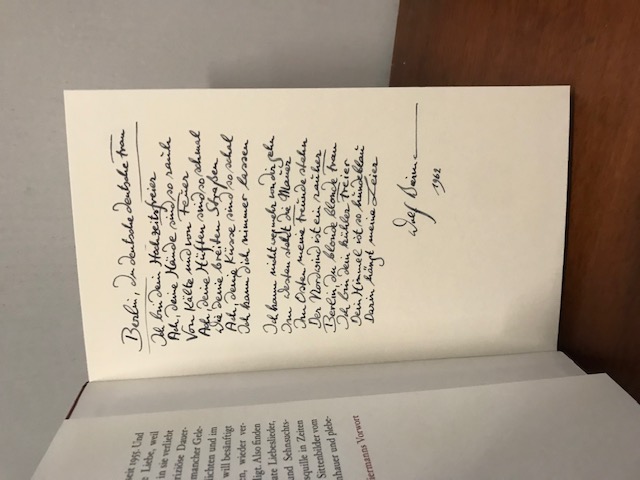 Berlin, du deutsche deutsche Frau
Ich bin dein Hochzeitsfreier
Ach, deine Hände sind so rauh
Von Kälte und von Feuer
Ach, deine Hüften sind so schmal
Wie deine breiten Straßen
Ach, deine Küsse sind so schal
Ich kann dich nimmer lassen
Ich kann nicht weg mehr von dir gehn
Im Westen steht die Mauer
Im Osten meine Freunde stehn
Der Nordwind ist ein rauher
Berlin, du blonde blonde Frau
Ich bin dein kühler Freier
Dein Himmel ist so hundeblau
Darin hängt meine Leier
Wolf Biermann
1962
seit 1953. Und
Liebe, weil
in sie verliebt
Dauer-
mancher Gele-
ichten und im
will besänftigt
en, wieder ver-
digt. Also finden
ute Liebeslieder,
und Sehnsuchts-
asquille in Zeiten
Sittenbilder vom
nhauer und plebe-
iermanns Vorwort